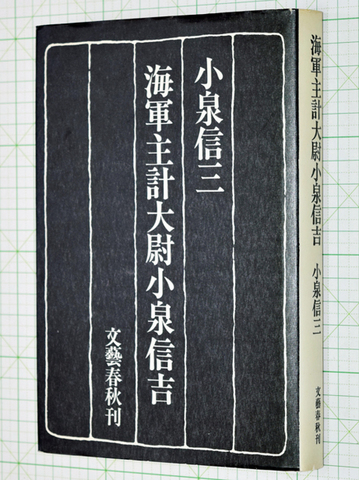 小泉信三
海軍主計大尉小泉信吉
文藝春秋刊
海軍主計大尉小泉信吉 小泉信三
文藝春秋刊